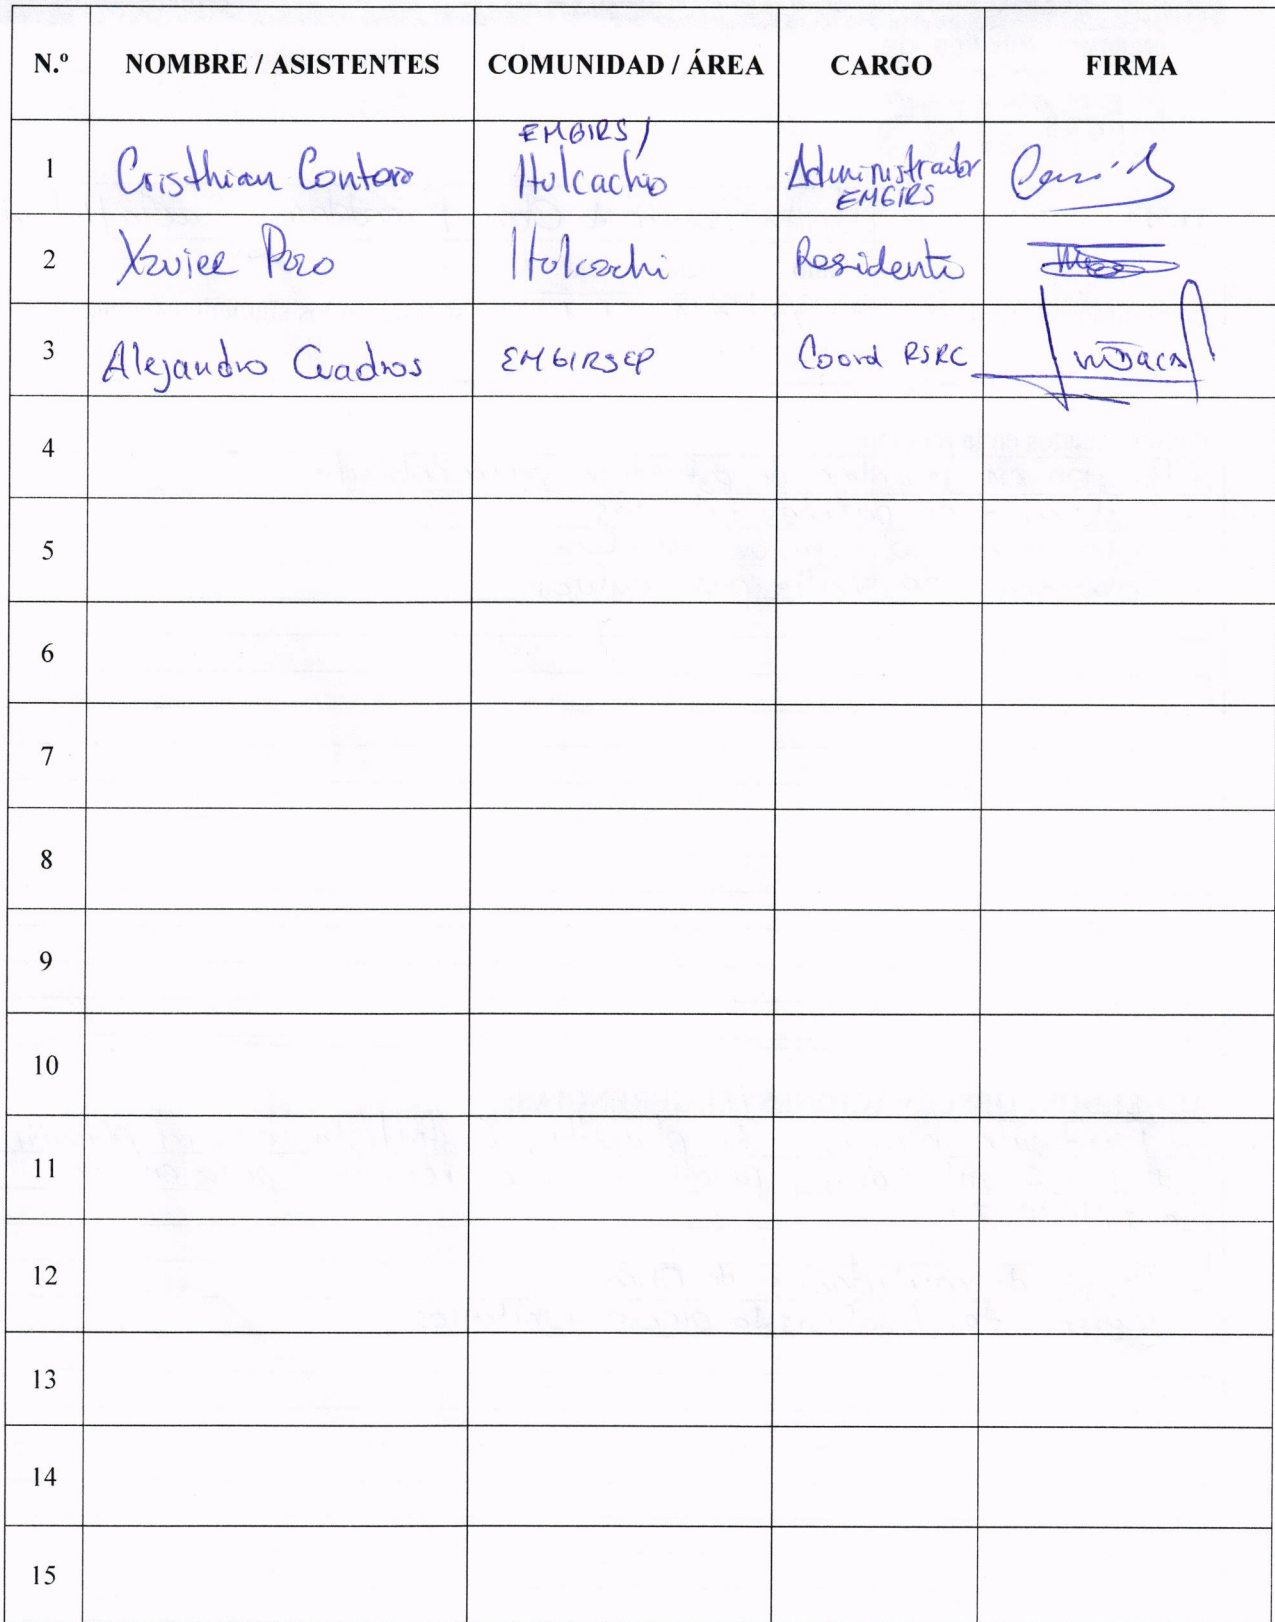 N.º NOMBRE / ASISTENTES COMUNIDAD / ÁREA CARGO FIRMA
1 Cristhian Contero EMGIRS / Itulcachio Administrador EMGIRS
2 Xavier Itulcachi Residente
3 Alejandro Cuadros EMGIRSEP Coord RSRC
4
5
6
7
8
9
10
11
12
13
14
15